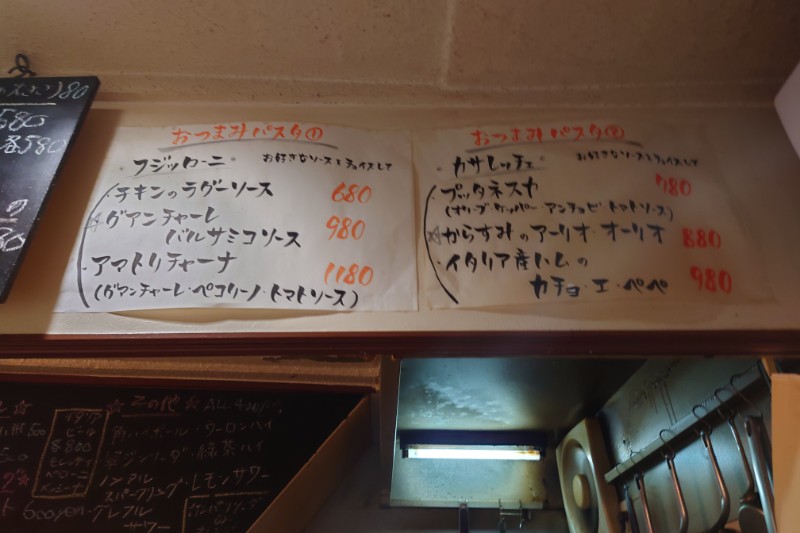 580
各580
おつまみパスタ①
・フジッローニ お好きなソースをチョイスして
・チキンのラグーソース 680
☆グアンチャーレ
バルサミコソース 980
・アマトリチャーナ 1180
(グアンチャーレ・ペコリーノ・トマトソース)
おつまみパスタ②
・カサレッチェ お好きなソースをチョイスして
・プッタネスカ 780
(オリーブ ケッパー アンチョビ トマトソース)
☆からすみのアーリオ・オーリオ 880
・イタリア産ハムの
カチョ・エ・ペペ 980
イタリア
ビール
各800
モレッティ
☆その他☆
ウーロンハイ
緑茶ハイ
ノンアル
スパークリング
レモンサワー
グレフル
サワー